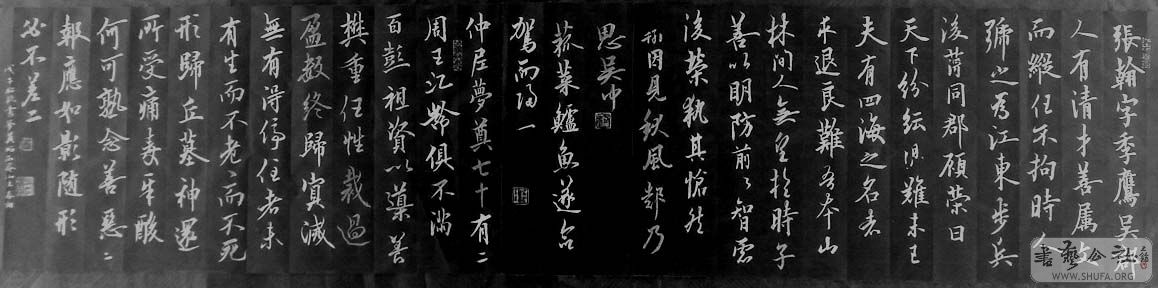 張翰字季鷹吳郡
人有清才善屬文
而縱任不拘時人
號之為江東步兵
後謂同郡顧榮曰
天下紛紜禍難未已
夫有四海之名者
求退良難吾本山
林間人無望於時子
善以明防前以智慮
後榮執其愴然
翰因見秋風起乃
思吳中
菰菜鱸魚遂命
駕而歸一
仲尼夢奠七十有二
周王九齡俱不滿
百彭祖資以導養
樊重任性裁過
盈數終歸冥滅
無有得停住者未
有生而不老々而不死
形歸丘墓神還
所受痛毒辛酸
何可熟念善惡之
報應如影隨形
必不差二
書藝公社
WWW.SHUFA.ORG